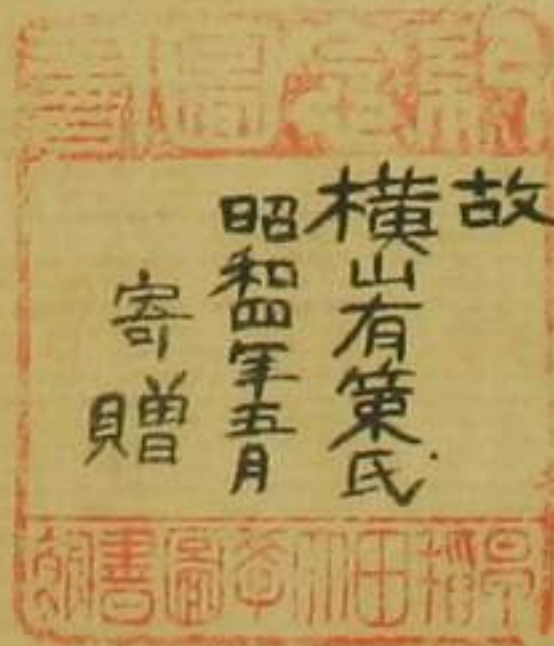 圖書
故
横山有策氏
昭和四年五月
寄贈
早稻田大學圖書館